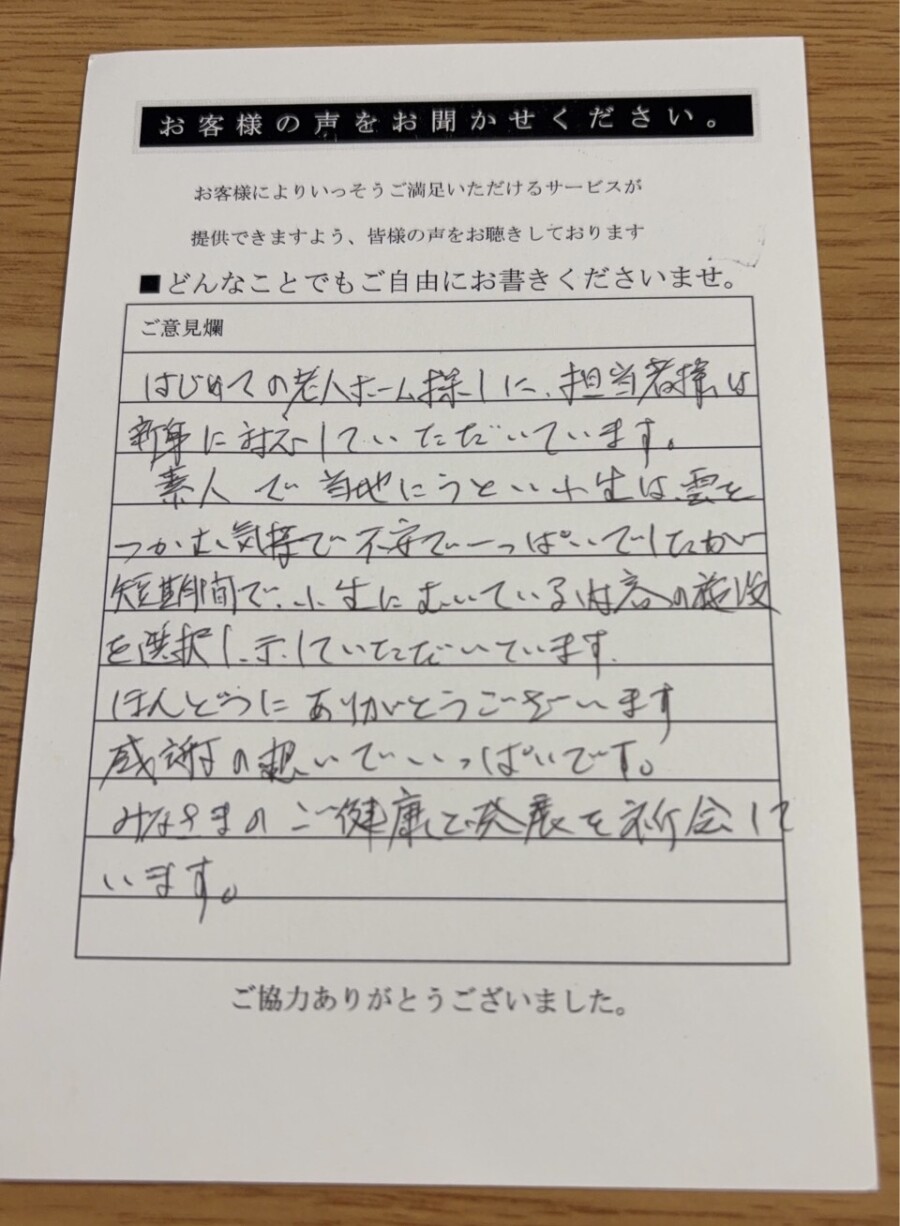 お客様の声をお聞かせください。
お客様によりいっそうご満足いただけるサービスが
提供できますよう、皆様の声をお聴きしております
■どんなことでもご自由にお書きくださいませ。
ご意見爛
はじめての老人ホーム探しに、担当者様は
に対応していただいています。
素人で当地にうとい小生は、雲を
つかむ気持で不安で一っぱいでしたが
短期間で、小生にむいている内容の施設
を選択し、示していただいています。
ほんどうにありがとうございます
感謝の想いでいっぱいです。
みなさまのご健康と発展を祈念して
います。
ご協力ありがとうございました。